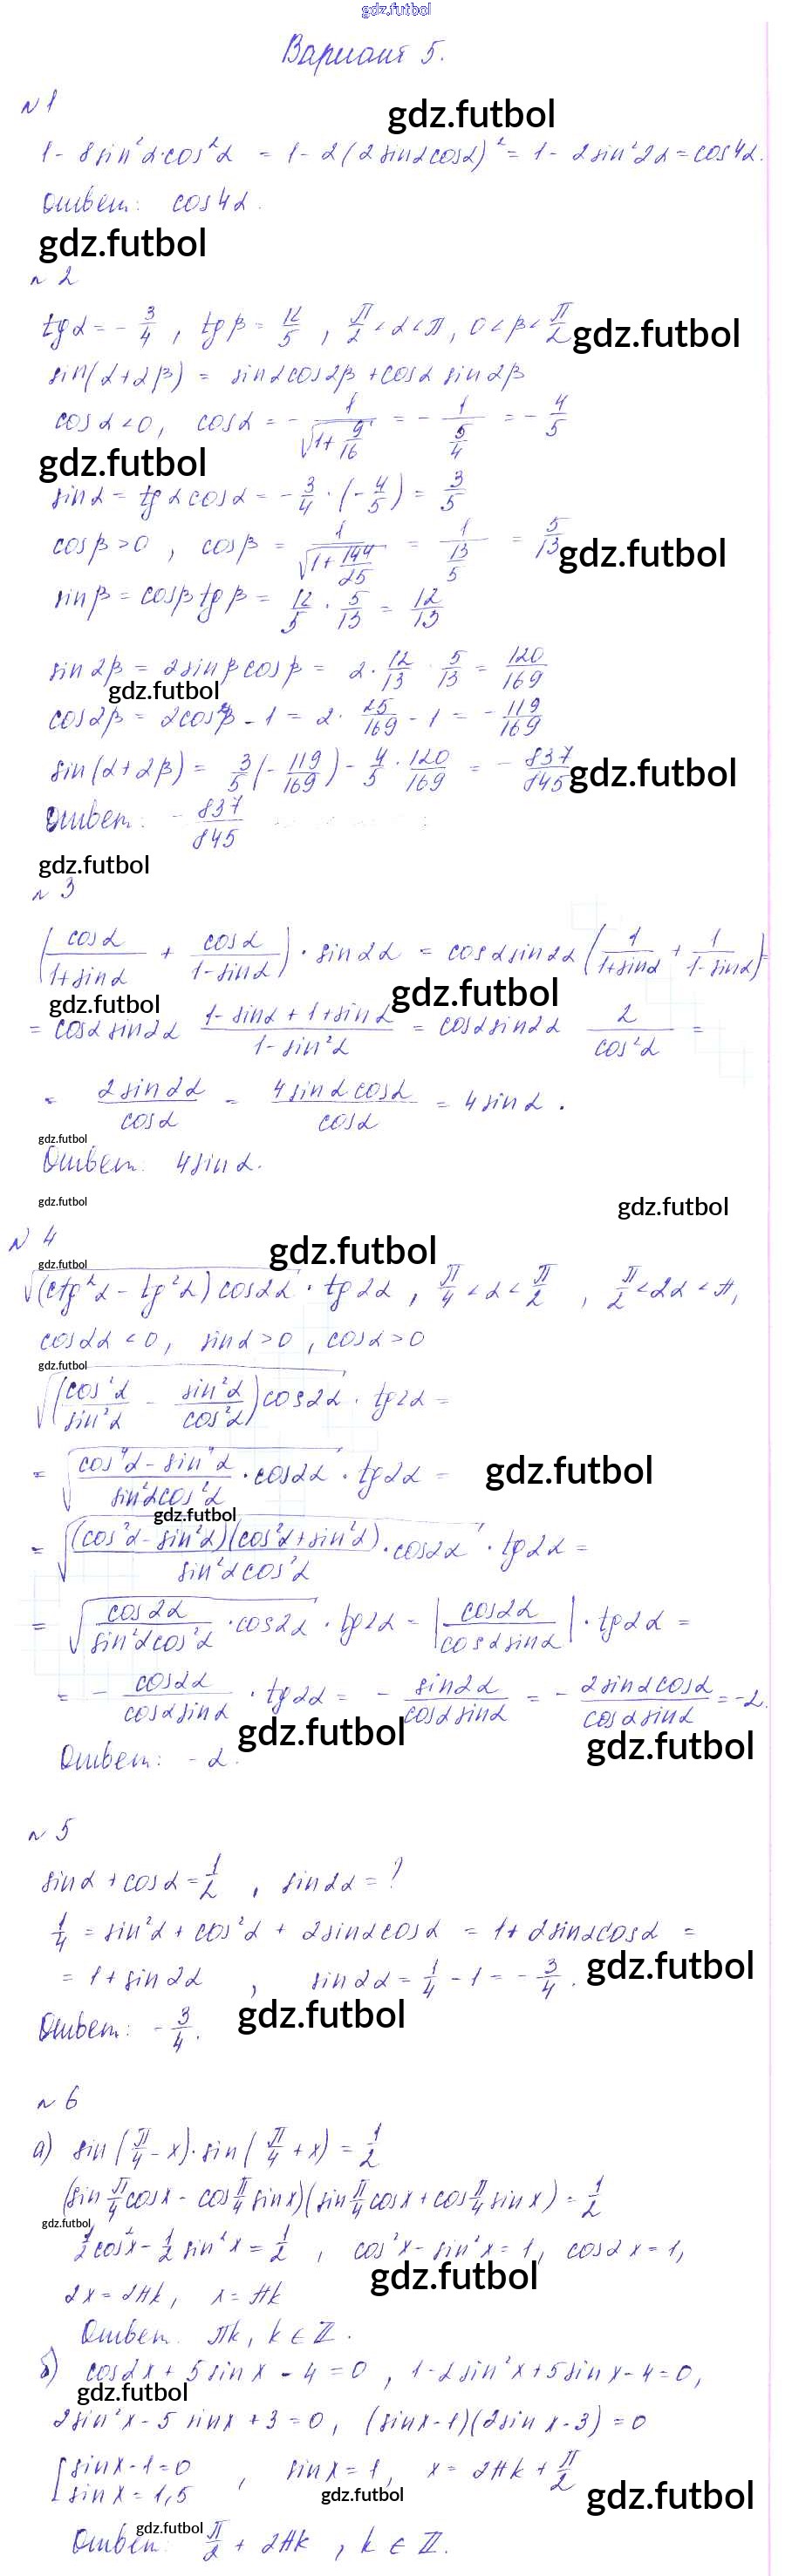 gdz.futbol
Вариант 5.
№ 1
gdz.futbol
1 - 8sin²α·cos²α = 1 - 2(2sinαcosα)² = 1 - 2sin²2α = cos4α.
Ответ: cos4α.
gdz.futbol
№ 2
tgα = -3/4, tgβ = 12/5, π/2 < α < π, 0 < β < π/2
gdz.futbol
sin(α+2β) = sinαcos2β + cosα sin2β
cosα < 0, cosα = -1/√(1+9/16) = -1/(5/4) = -4/5
gdz.futbol
sinα = tgαcosα = -3/4·(-4/5) = 3/5
cosβ > 0, cosβ = 1/√(1+144/25) = 1/(13/5) = 5/13
gdz.futbol
sinβ = cosβtgβ = 12/5·5/13 = 12/13
sin2β = 2sinβcosβ = 2·12/13·5/13 = 120/169
gdz.futbol
cos2β = 2cos²β - 1 = 2·25/169 - 1 = -119/169
sin(α+2β) = 3/5(-119/169) - 4/5·120/169 = -837/845
gdz.futbol
Ответ: -837/845
gdz.futbol
№ 3
(cosα/(1+sinα) + cosα/(1-sinα))·sin2α = cosαsin2α(1/(1+sinα) + 1/(1-sinα)) =
gdz.futbol
gdz.futbol
= cosαsin2α (1-sinα+1+sinα)/(1-sin²α) = cosαsin2α 2/cos²α =
= 2sin2α/cosα = 4sinαcosα/cosα = 4sinα.
gdz.futbol
Ответ: 4sinα.
gdz.futbol
gdz.futbol
№ 4
gdz.futbol
gdz.futbol
√((ctg²α - tg²α)cos2α)·tg2α, π/4 < α < π/2, π/2 < 2α < π,
cos2α < 0, sinα > 0, cosα > 0
gdz.futbol
√((cos²α/sin²α - sin²α/cos²α)cos2α)·tg2α =
= √((cos⁴α - sin⁴α)/(sin²αcos²α)·cos2α)·tg2α =
gdz.futbol
gdz.futbol
= √((cos²α - sin²α)(cos²α + sin²α)/(sin²αcos²α)·cos2α)·tg2α =
= √(cos2α/(sin²αcos²α)·cos2α)·tg2α = |cos2α/(cosαsinα)|·tg2α =
= -cos2α/(cosαsinα)·tg2α = -sin2α/(cosαsinα) = -2sinαcosα/(cosαsinα) = -2.
gdz.futbol
gdz.futbol
Ответ: -2.
№ 5
sinα + cosα = 1/2, sin2α = ?
1/4 = sin²α + cos²α + 2sinαcosα = 1 + 2sinαcosα =
gdz.futbol
= 1 + sin2α, sin2α = 1/4 - 1 = -3/4.
gdz.futbol
Ответ: -3/4.
№ 6
а) sin(π/4 - x)·sin(π/4 + x) = 1/2
(sin π/4 cosx - cos π/4 sinx)(sin π/4 cosx + cos π/4 sinx) = 1/2
gdz.futbol
1/2cos²x - 1/2 sin²x = 1/2, cos²x - sin²x = 1, cos2x = 1,
gdz.futbol
2x = 2πk, x = πk
Ответ. πk, k ∈ Z.
б) cos2x + 5sinx - 4 = 0, 1 - 2sin²x + 5sinx - 4 = 0,
gdz.futbol
2sin²x - 5sinx + 3 = 0, (sinx - 1)(2sinx - 3) = 0
[sinx - 1 = 0, sinx = 1, x = 2πk + π/2
sinx = 1,5
gdz.futbol
gdz.futbol
gdz.futbol
Ответ: π/2 + 2πk, k ∈ Z.